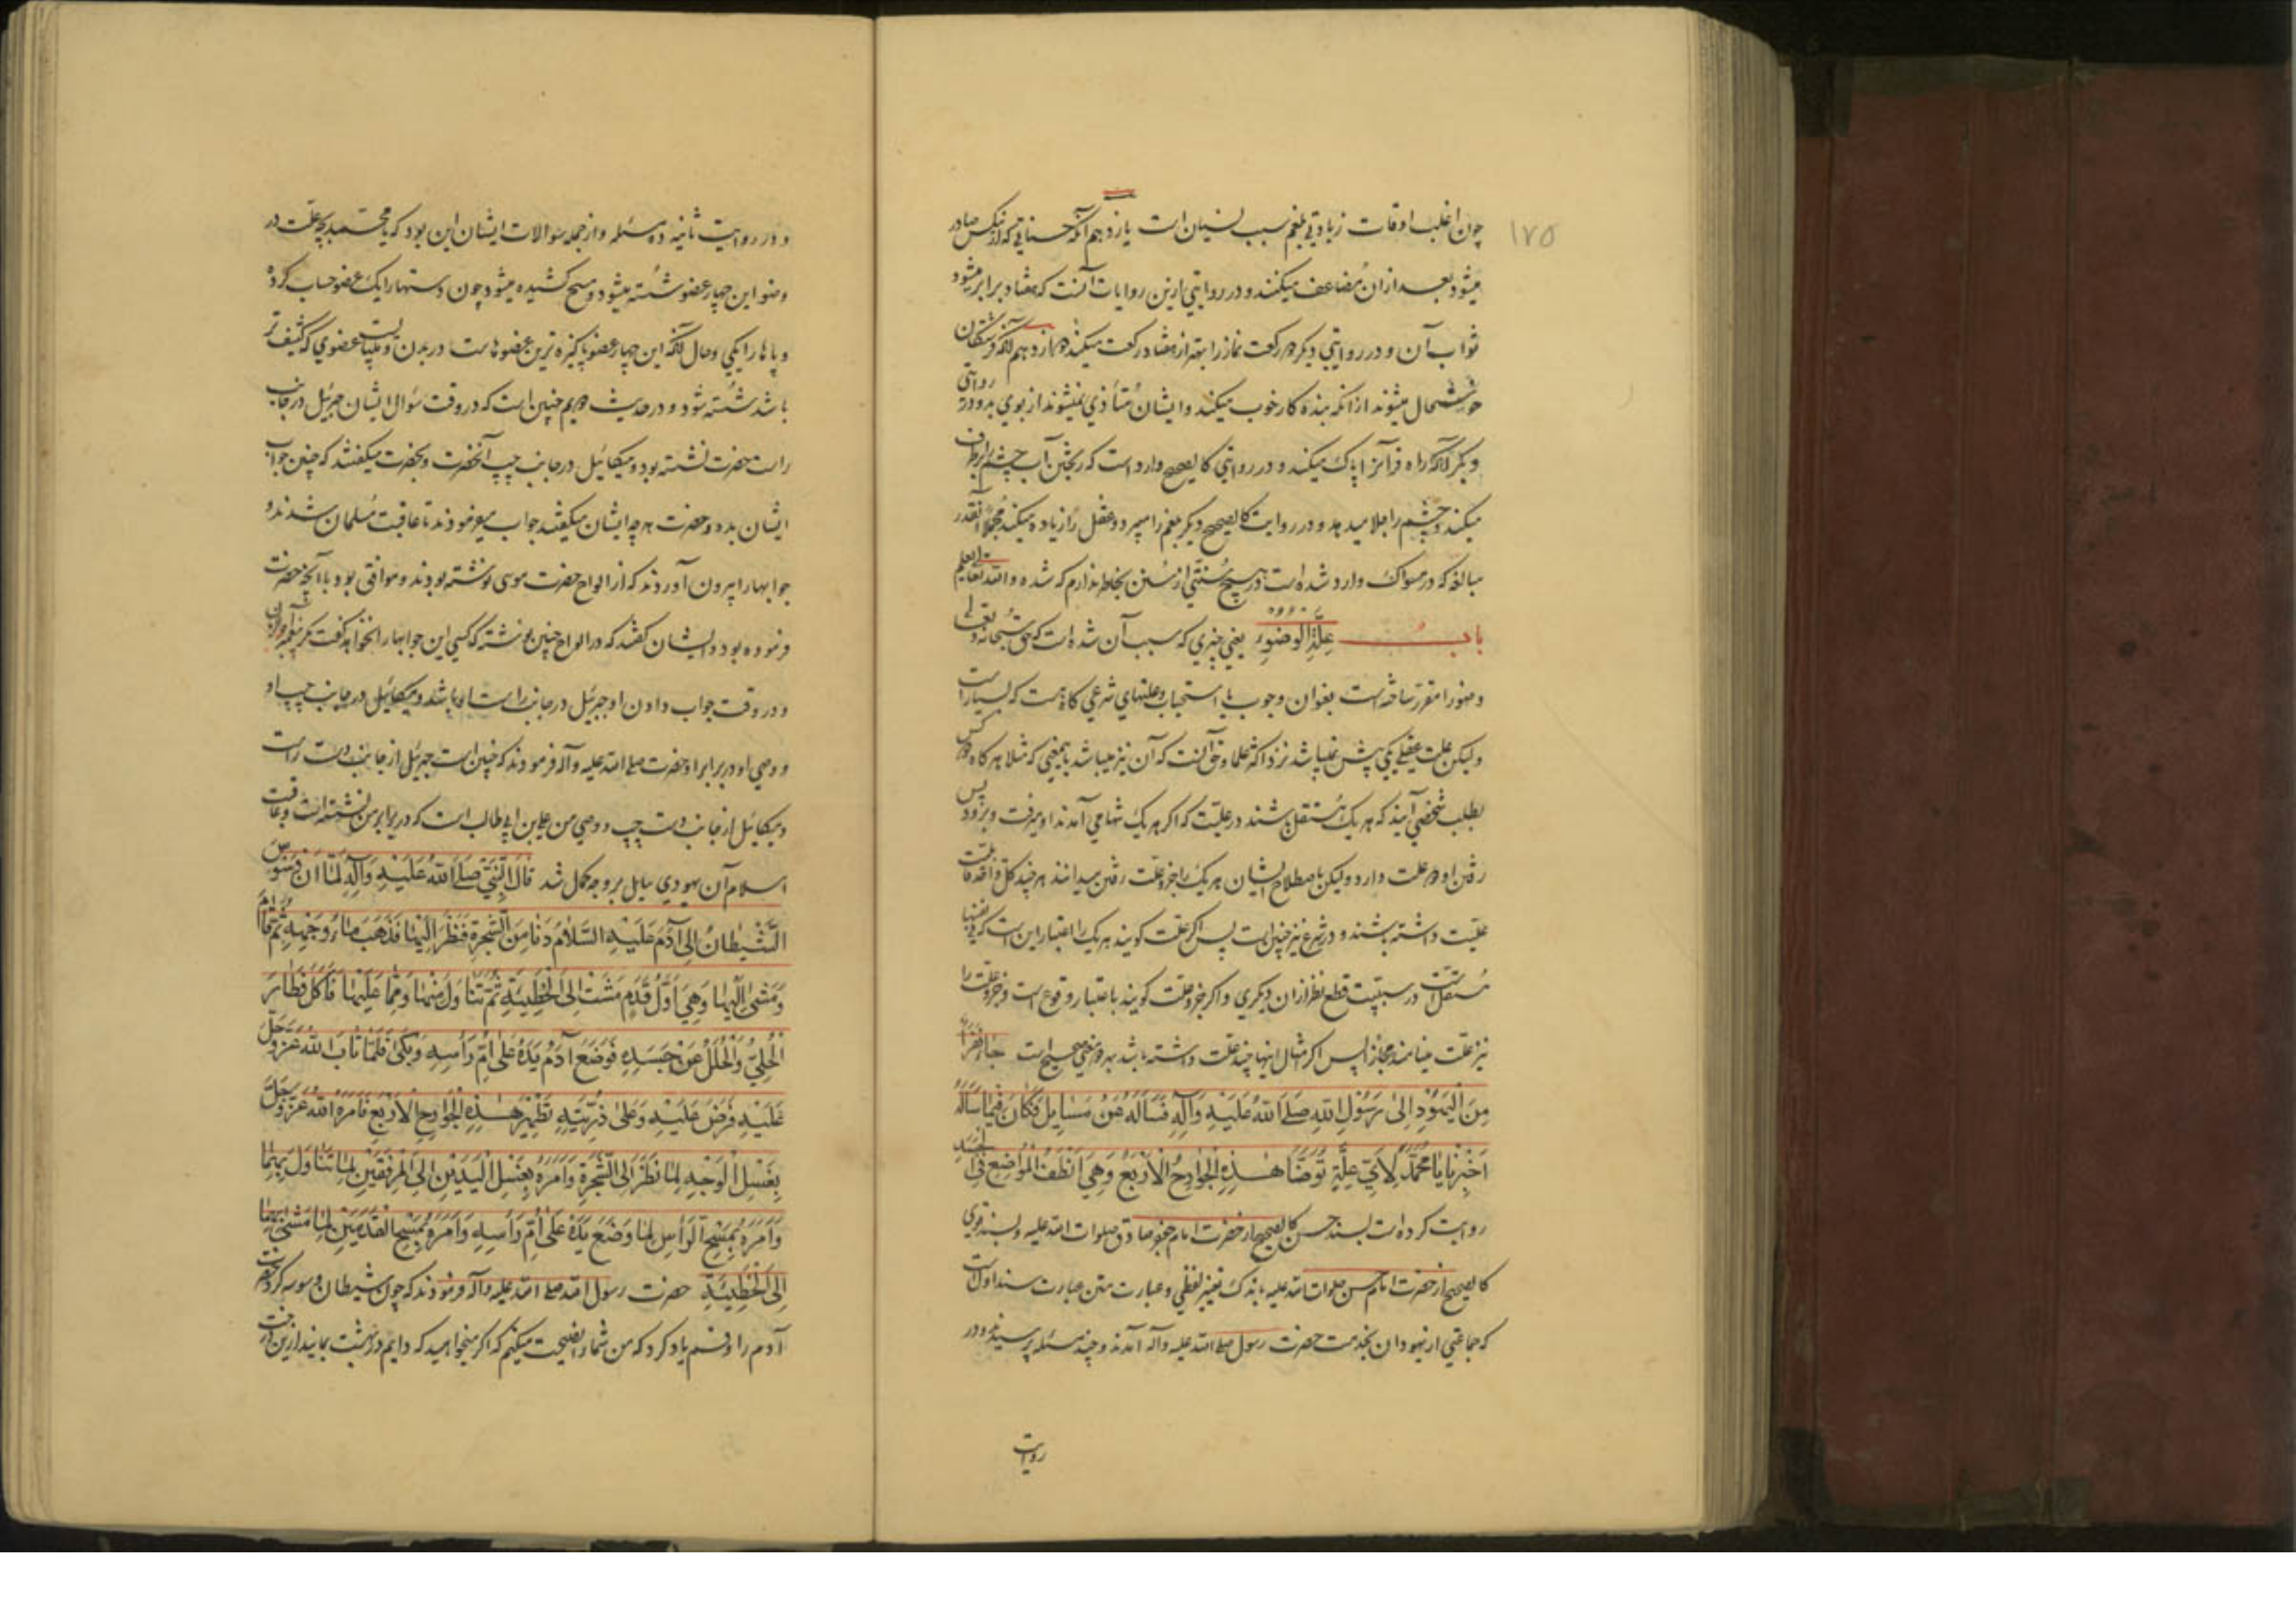 ۱۷۵
چون اغلب اوقات زیادتی بلغم سبب نسیان است یازدهم آنکه حسناتی که از نیکس صادر
میشود بعد از ان مضاعف میکنند و در روایتی ازین روایات آنست که هفتاد برابر میشود
ثواب آن و در روایتی دیکر دو رکعت نماز را بهتر از هفتاد رکعت میکند دوازدهم آنکه فرشتکان
خوشحال میشوند از انکه بنده کار خوب میکند و ایشان متأذی نمیشوند از بوی بد و در روایتی
دیکر آنکه راه قرآن را پاک میکند و در روایتی کالصحیح وارد است که ریختن آب چشم را برطرف
میکند و چشم را جلا میدهد و در روایت کالصحیح دیکر بلغم را میبرد و عقل را زیاده میکند مجملا آنقدر
مبالغه که در مسواک وارد شده است در هیچ سنتی از سنن بخاطر ندارم که شده والله تعالی یعلم
باب علة الوضوء یعنی چیزی که سبب آن شده است که حق سبحانه و تعالی
وضو را مقرر ساخته است بعنوان وجوب یا استحباب و علتهای شرعی کاه هست که بسیار است
ولیکن علت عقلی یکی بیش نمیباشد نزد اکثر علما و حق آنست که آن نیز میباشد باینمعنی که مثلا هرکاه دو کس
بطلب شخصی آیند که هر یک مستقل باشند در علیت که اکر هر یک تنها می آمدند او میرفت و بر او بود پس
رفتن او دو علت دارد ولیکن باصطلاح ایشان هر یک را جزو علت رفتن میدانند هر چند کل واحد قابلیت
علیت داشته باشند و در شرع نیز چنین است پس اکر علت کویند هر یک را باعتبار این است که فی نفسها
مستقل است در سببیت قطع نظر از ان دیکری و اکر جزو علت کویند باعتبار وقوع است و جزو علت را
نیز علت مینامند مجازا پس اکر امثال اینها چند علت داشته باشد بهر دو معنی صحیح است جاء نفر
من الیهود الی رسول الله صلی الله علیه وآله فسألوه عن مسایل فکان فیما سألوه
اخبرنا یا محمد لای علة توضأ هذه الجوارح الاربع وهی انظف المواضع فی الجسد
روایت کرده است بسند حسن کالصحیح از حضرت امام جعفر صادق صلوات الله علیه و بسند قوی
کالصحیح از حضرت امام حسن صلوات الله علیه باندک تغییر لفظی و عبارت متن عبارت سند اول است
که جماعتی از یهودان بخدمت حضرت رسول صلی الله علیه وآله آمدند و چند مسئله پرسیدند و در
روایت
و در روایت ثانیه ده مسئله و از جمله سؤالات ایشان این بود که یا محمد بچه علت در
وضو این چهار عضو شسته میشود و مسح کشیده میشود چون دستها را یک عضو حساب کرده
و پاها را یکی و حال آنکه این چهار عضو پاکیزه ترین عضوهاست در بدن و میبایست عضوی که کثیف تر
باشد شسته شود و در حدیث دویم چنین است که در وقت سؤال ایشان جبرئیل در جانب
راست حضرت نشسته بود و میکائیل در جانب چپ آنحضرت و بحضرت میکفتند که چنین جواب
ایشان بده و حضرت هر چه ایشان میکفتند جواب میفرمودند تا عاقبت مسلمان شدند و
جوابها را بیرون آوردند که از الواح حضرت موسی نوشته بودند و موافق بود با آنچه حضرت
فرموده بود و ایشان کفتند که در الواح چنین نوشته که کسی این جوابها را نخواهد کفت مکر پیغمبر آخر الزمان
و در وقت جواب دادن او جبرئیل در جانب راست او باشد و میکائیل در جانب چپ او
و وصی او در برابر او حضرت صلی الله علیه وآله فرمودند که چنین است جبرئیل از جانب دست راست
و میکائیل از جانب دست چپ و وصی من علی بن ابی طالب است که در برابر من نشسته است و عاقبت
اسلام آن یهودی سایل بر وجه کمل شد قال النبی صلی الله علیه وآله لما ان وسوس
الشیطان الی آدم علیه السلام دنا من الشجرة فنظر الیها فذهب ماء وجهه ثم قام
ومشی الیها وهی اول قدم مشت الی الخطیئة ثم تناول منها ومما علیها فأکل فطار
الحلی والحلل عن جسده فوضع آدم یده علی ام رأسه وبکی فلما تاب الله عز وجل
علیه فرض علیه وعلی ذریته تطهیر هذه الجوارح الاربع فامره الله عز وجل
بغسل الوجه لما نظر الی الشجرة وامره بغسل الیدین الی المرفقین لما تناول بهما
وامره بمسح الرأس لما وضع یده علی ام رأسه وامره بمسح القدمین لما مشی بهما
الی الخطیئة حضرت رسول الله صلی الله علیه وآله فرمودند که چون شیطان وسوسه کرد حضرت
آدم را و قسم یاد کرد که من شما را نصیحت میکنم که اکر میخواهید که دایم در بهشت بمانید ازین درخت